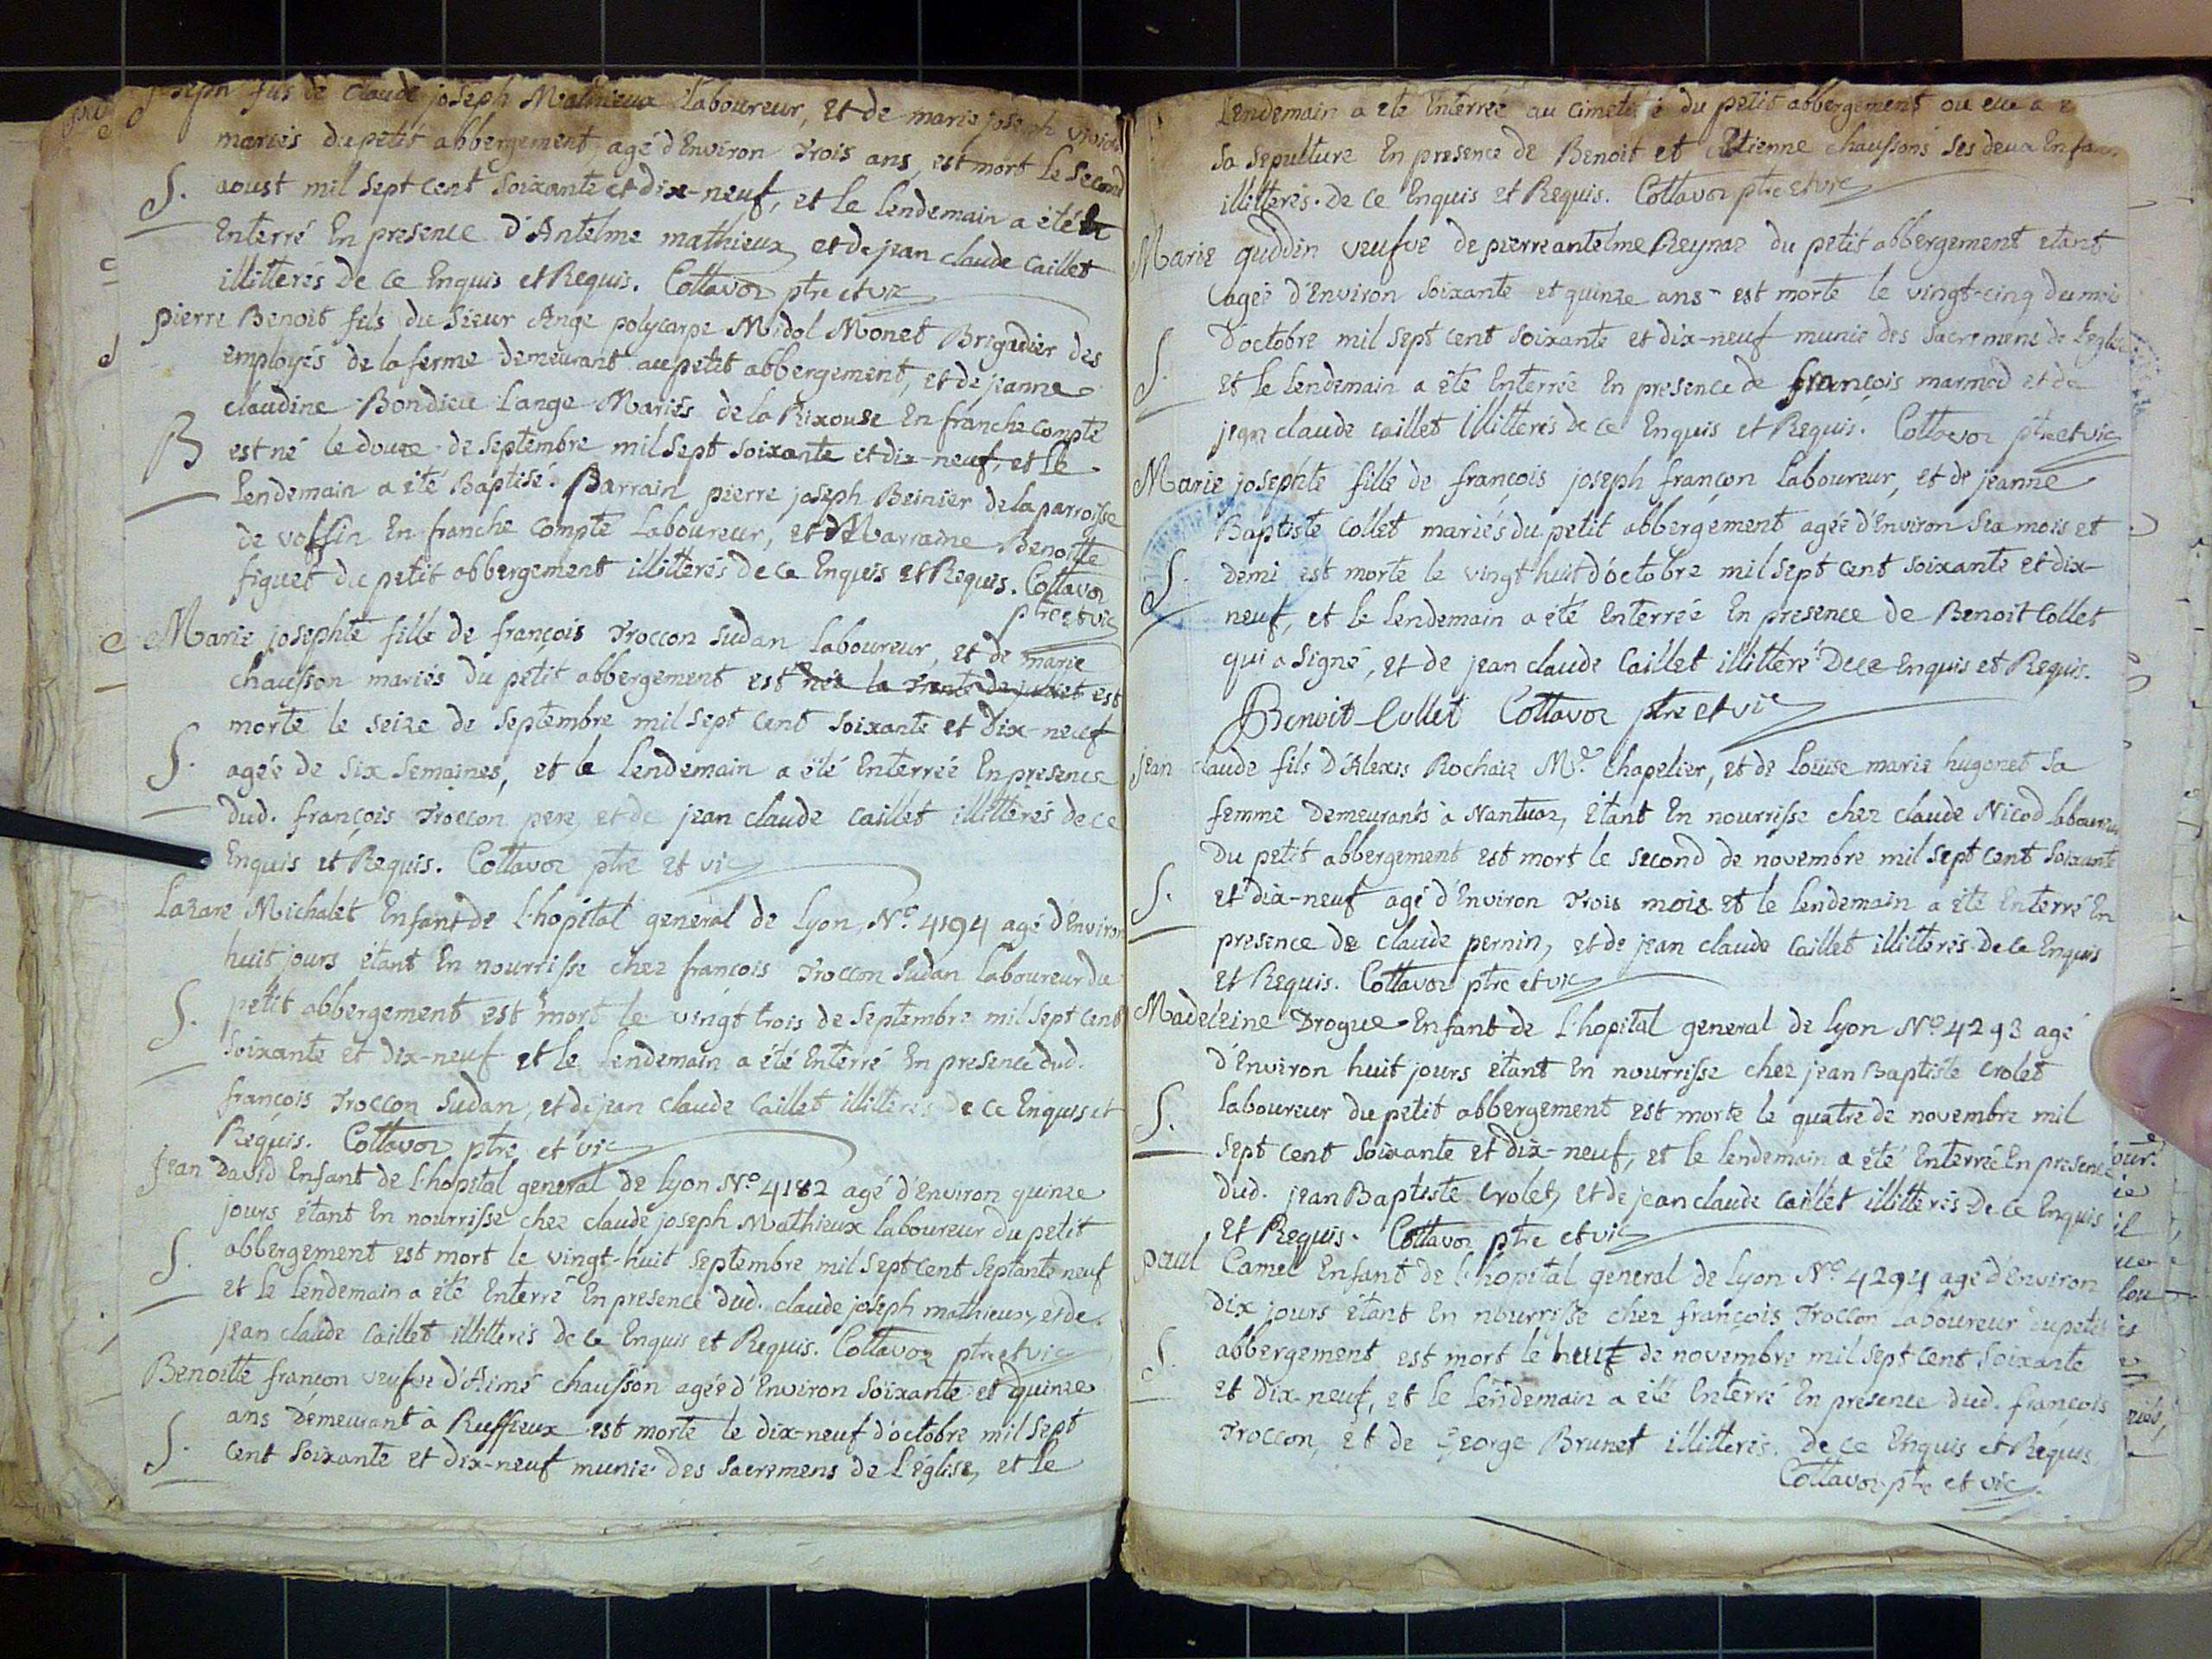 joseph fils de Claude joseph Mathieux Laboureur, et de marie joseph
mariés du petit abbergement, agé d'Environ Trois ans, est mort le second
S. aoust mil sept cent soixante et dix-neuf, et le lendemain a été
Enterré En presence d'Antelme mathieux, et de jean claude Caillet
illitterés de ce Enquis et Requis. Cottavoz ptre et vic
pierre Benoit fils du Sieur Ange polycarpe Midol Monet Brigadier des
employés de la ferme demeurant au petit abbergement, et de jeanne
claudine Bondieu Lange Mariés de la Rixouse En franche Compté
B est né le douze de septembre mil sept soixante et dix-neuf, et le
lendemain a été Baptisé. Parrain pierre joseph Beinier de la parroisse
de vossin En franche Compté Laboureur, et Marraine Benoitte
figuet du petit abbergement illitterés de ce Enquis et Requis. Cottavoz
ptre et vic
Marie josephte fille de françois Troccon Sudan Laboureur, et de marie
chausson mariés du petit abbergement est née le Trente de juillet est
morte le seize de septembre mil sept cent soixante et dix-neuf
S. agée de six semaines, et le lendemain a été Enterreé En presence
dud. françois Troccon pere, et de jean claude Caillet illitterés de ce
Enquis et Requis. Cottavoz ptre et vic
Lazare Michalet Enfant de l'hopital general de Lyon, N.o 4194 agé d'Environ
huit jours étant En nourrisse chez françois Troccon Sudan Laboureur du
S. petit abbergement est mort le vingt trois de septembre mil sept cent
soixante et dix-neuf et le lendemain a été Enterré En presence dud.
françois Troccon Sudan, et de jean claude Caillet illitterés de ce Enquis et
Requis. Cottavoz ptre et vic
jean David Enfant de l'hopital general de Lyon N.o 4182 agé d'Environ quinze
jours étant En nourrisse chez claude joseph Mathieux laboureur du petit
S. abbergement est mort le vingt-huit septembre mil sept cent septante neuf
et le lendemain a été Enterré En presence dud. claude joseph mathieux, et de
jean claude Caillet illitterés de ce Enquis et Requis. Cottavoz ptre et vic
Benoitte françon veufve d'Aimé chausson agée d'Environ soixante et quinze
ans Demeurant a Ruffieux est morte le dix-neuf d'octobre mil sept
S. cent soixante et dix-neuf munie des sacremens de l'église, et le
Lendemain a été Enterreé au du petit abbergement ou elle a
sa sepulture En presence de Benoit et Etienne chaussons ses deux Enfans
illitterés. de ce Enquis et Requis. Cottavoz ptre et vic
Marie guddin veufve de pierre antelme Reynaz du petit abbergement etant
agée d'Environ soixante et quinze ans est morte le vingt-cinq du moi
S. D'octobre mil sept cent soixante et dix-neuf munie des sacremens de l'eglise
et le lendemain a été Enterrée En presence de françois marmod et de
jean claude Caillet illitterés de ce Enquis et Requis. Cottavoz ptre et vic
Marie josephte fille de françois joseph françon Laboureur, et de jeanne
Baptiste Collet mariés du petit abbergement agée d'Environ six mois et
S. demi est morte le vingt huit d'octobre mil sept cent soixante et dix-
neuf, et le lendemain a été Enterreé En presence de Benoit Collet
qui a signé, et de jean claude Caillet illitteré de ce Enquis et Requis.
Benoit Collet Cottavoz ptre et vic
jean claude fils d'Alexis Rochaix M.d Chapelier, et de Louise marie hugonet sa
femme Demeurants à Nantuaz, étant En nourrisse chez claude Nicod laboureur
du petit abbergement est mort le second de novembre mil sept cent soixante
S. et dix-neuf agé d'Environ Trois mois et le lendemain a été Enterré En
presence de claude pernin, et de jean claude Caillet illitterés de ce Enquis
et Requis. Cottavoz ptre et vic
Madeleine Drogue Enfant de l'hopital general de Lyon N.o 4293 agé
d'Environ huit jours étant En nourrisse chez jean Baptiste Crolet
S. Laboureur du petit abbergement est morte le quatre de novembre mil
sept cent soixante et dix-neuf, et le lendemain a été Enterreé En presence
dud. jean Baptiste Crolet, et de jean claude Caillet illitterés de ce Enquis
et Requis. Cottavoz ptre et vic
paul Camel Enfant de l'hopital general de Lyon N.o 4294 agé d'Environ
dix jours étant En nourrisse chez françois Troccon Laboureur du petit
S. abbergement est mort le huit de novembre mil sept cent soixante
et dix-neuf, et le lendemain a été Enterré En presence dud. françois
Troccon, et de George Brunet illitterés. de ce Enquis et Requis
Cottavoz ptre et vic